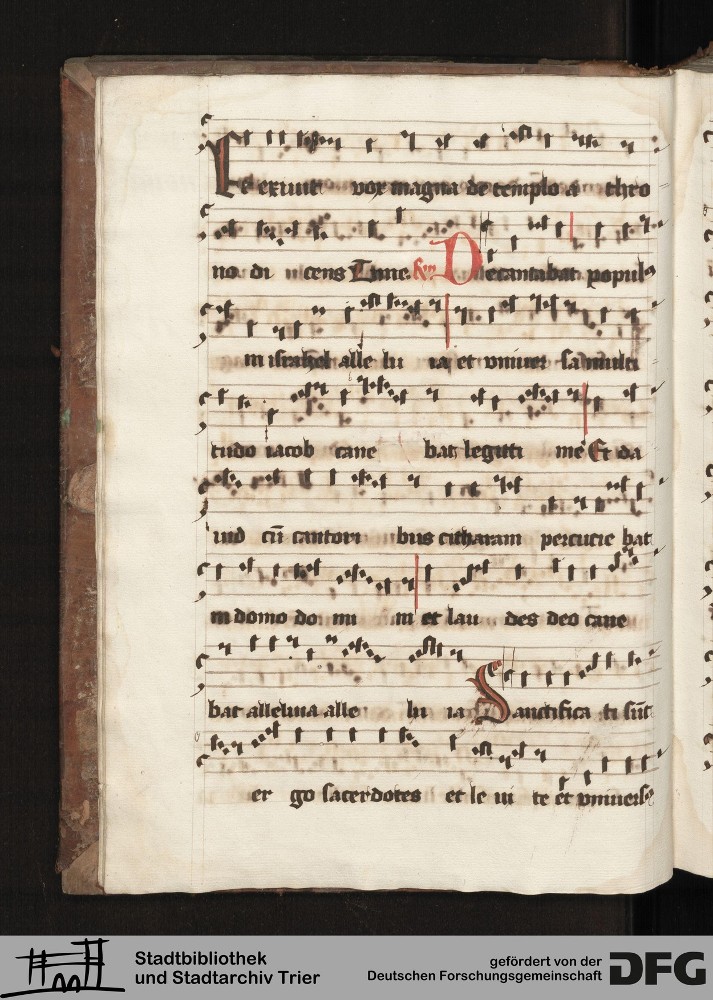 Et exiuit vox magna de templo a thro
no di cens Tunc Decantabat popul9
m israhel alle lu ia et vniuer sa multi
tudo iacob cane bat legitti me Et da
uid cū cantori bus citharam percucie bat
in domo do mi ni et lau des deo cane
bat alleluia alle lu ia Sanctifica ti sūt
er go sacerdotes et le ui te et vniuers9
Stadtbibliothek
und Stadtarchiv Trier
gefördert von der
Deutschen Forschungsgemeinschaft
DFG